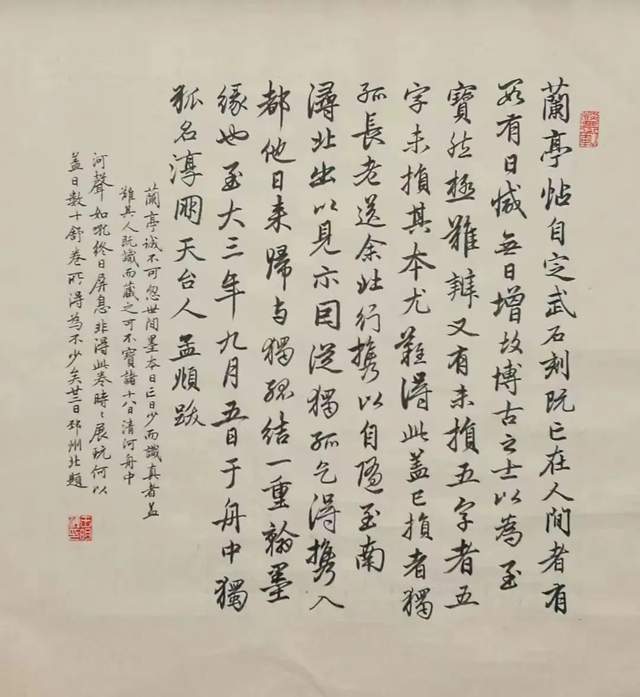 蘭亭帖自定武石刻既亡在人間者有
數有日減無日增故博古之士以為至
寶然極難辨又有未損五字者五
字未損其本尤難得此蓋已損者獨
孤長老送余北行攜以自隨至南
潯北出以見示因從獨孤乞得攜入
都他日来歸与獨孤結一重翰墨
緣也至大三年九月五日于舟中獨
孤名淳朋天台人孟頫跋
蘭亭誠不可忽世間墨本日亡日少而識真者蓋
難其人既識而藏之可不寶諸十八日清河舟中
河聲如吼終日屏息非得此卷時〻展玩何以
蓋日數十舒卷所得為不少矣廿二日邳州北題